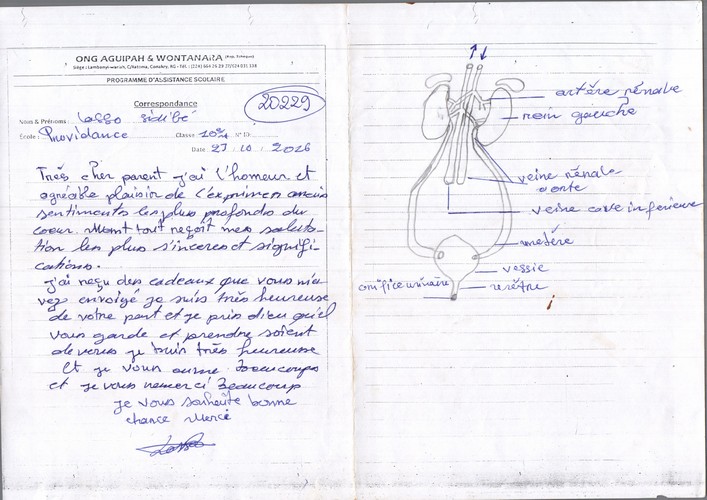 ONG AGUIPAH & WONTANARA
PROGRAMME D'ASSISTANCE SCOLAIRE
Correspondance
20229
Nom & Prénoms : Lasso Sidibé
Ecole : Providance Classe 10e N° ID
Date 27.10.2026
Très cher parent j'ai l'honneur et
agréable plaisir de l'exprimer
sentiments les plus profonds du
coeur. tout reçoit mes saluta-
tion les plus sinceres et signifi-
cations.
j'ai reçu des cadeaux que vous m'a-
vez envoiyé je suis très heureuse
de votre part et je pris dieu qu'il
vous garde et prendre soient
de vous je suis très heureuse
Et je vous aime Beaucoups
et je vous remerci Beaucoup
je vous souhaite bonne
chance Merci
artère rénale
rein gauche
veine rénale
aorte
veine cave inférieure
uretère
vessie
orifice urinaire
urètre